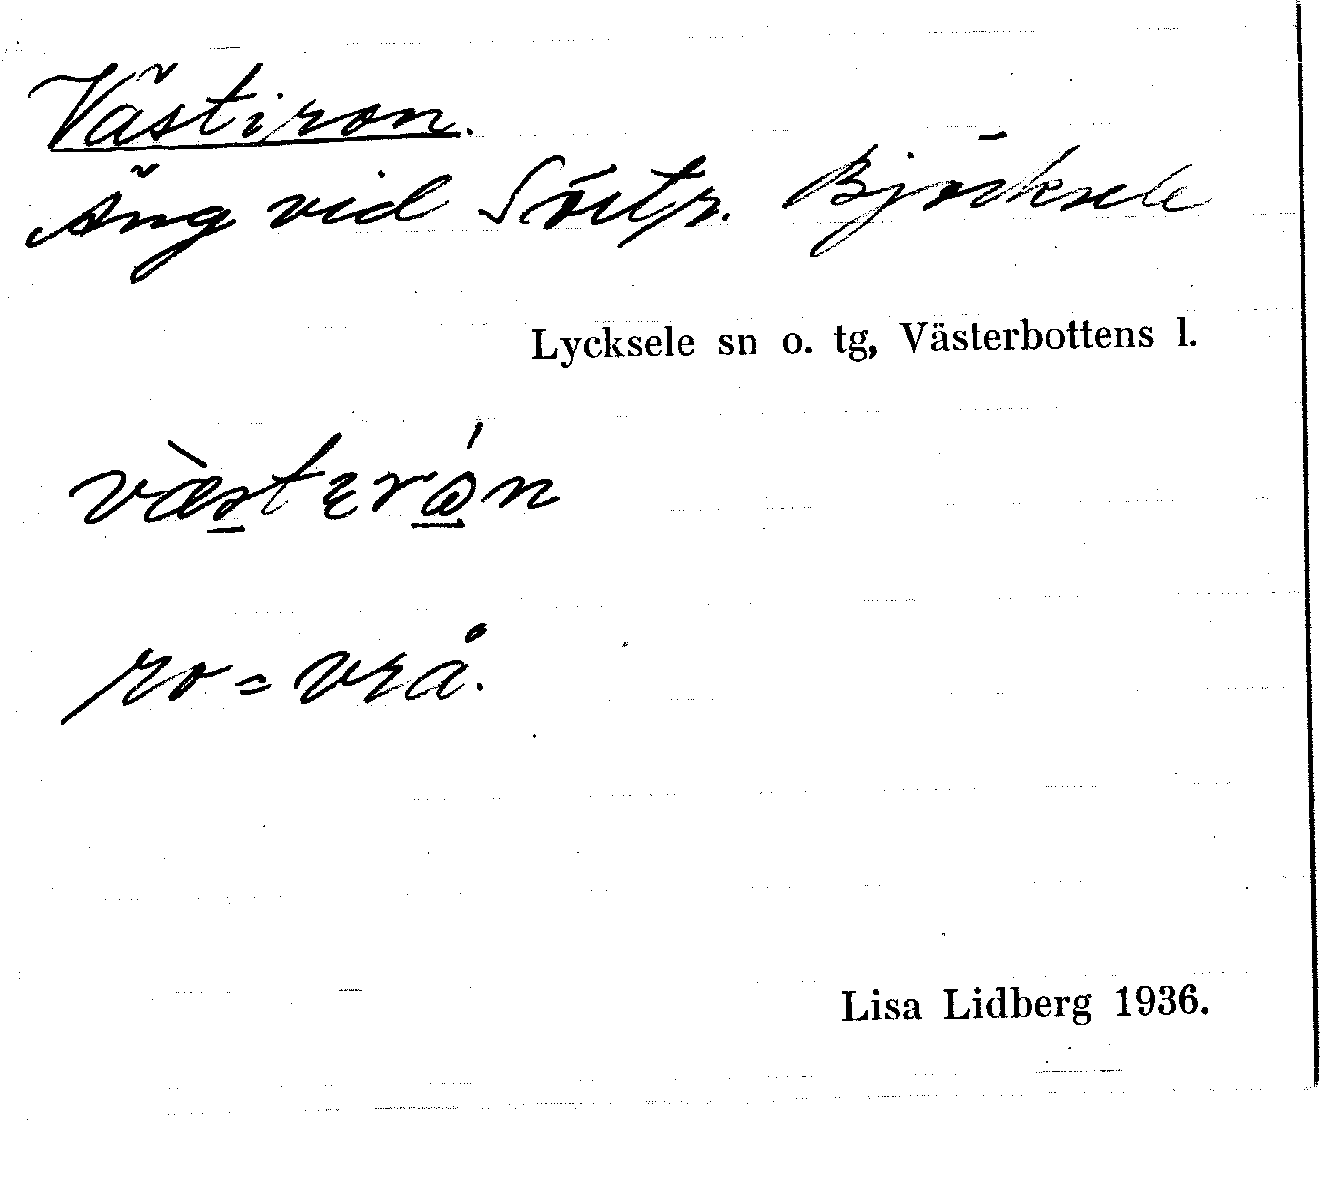 Västiron.
Äng vid Björksele
Lycksele sn o. tg, Västerbottens l.
væ̀sterǿn
ro = vrå.
Lisa Lidberg 1936.